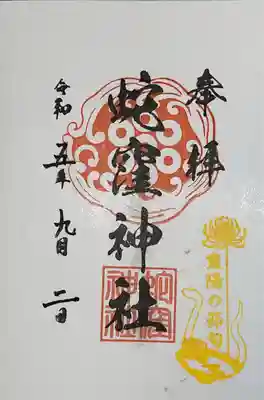 奉拝
蛇窪神社
令和五年九月二日
重陽の節句
蛇窪神社